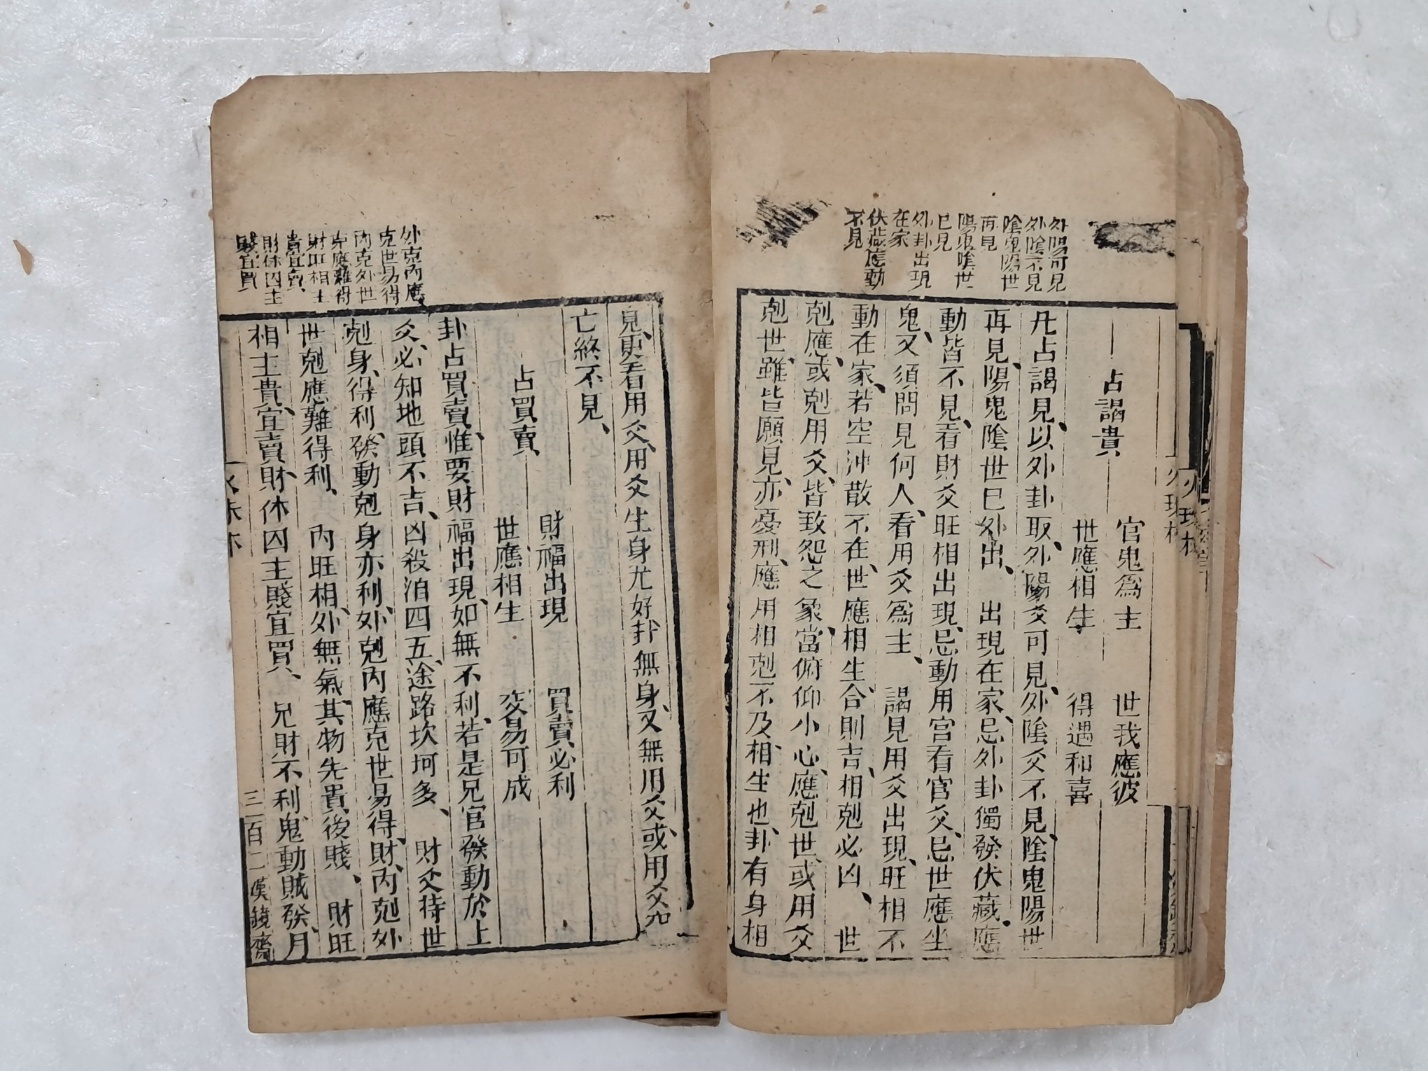 外陽可見
外陰不見
陰鬼陽世
再見
陽鬼陰世
已見
外卦出現
在家
伏藏應動
不見
占謁貴
官鬼為主 世我應彼
世應相生 得遇和喜
凡占謁見、以外卦取、外陽爻可見、外陰爻不見、陰鬼陽世
再見、陽鬼陰世已外出、出現在家、忌外卦獨發伏藏、應
動皆不見、看財爻旺相出現、忌動用官看官爻、忌世應坐
鬼、又須問見何人、看用爻為主、謁見用爻出現、旺相不
動在家、若空沖散不在、世應相生合則吉、相剋必凶、世
剋應、或剋用爻、皆致怨之象、當俯仰小心、應剋世、或用爻
剋世、雖皆願見、亦憂刑、應用相剋不及、相生也、卦有身相
見、更看用爻、用爻生身尤好、卦無身、又無用爻、或用爻
亡、終不見、
占買賣
財福出現 買賣必利
世應相生 交易可成
卦占買賣、惟要財福出現、如無不利、若是兄官發動於上
爻、必知地頭不吉、凶殺泊四五、途路坎坷多、財爻待世
剋身、得利、發動剋身亦利、外剋內應克世易得、財、內剋外
世剋應難得利、內旺相、外無氣、其物先貴後賤、財旺
相主貴、宜賣、財休囚主賤宜買、兄財不利、鬼動賊發、月
外克內應
克世易得
內克外世
克應難得
財旺相主
貴宜賣
財休囚主
賤宜買
三百二 漢鏡齋